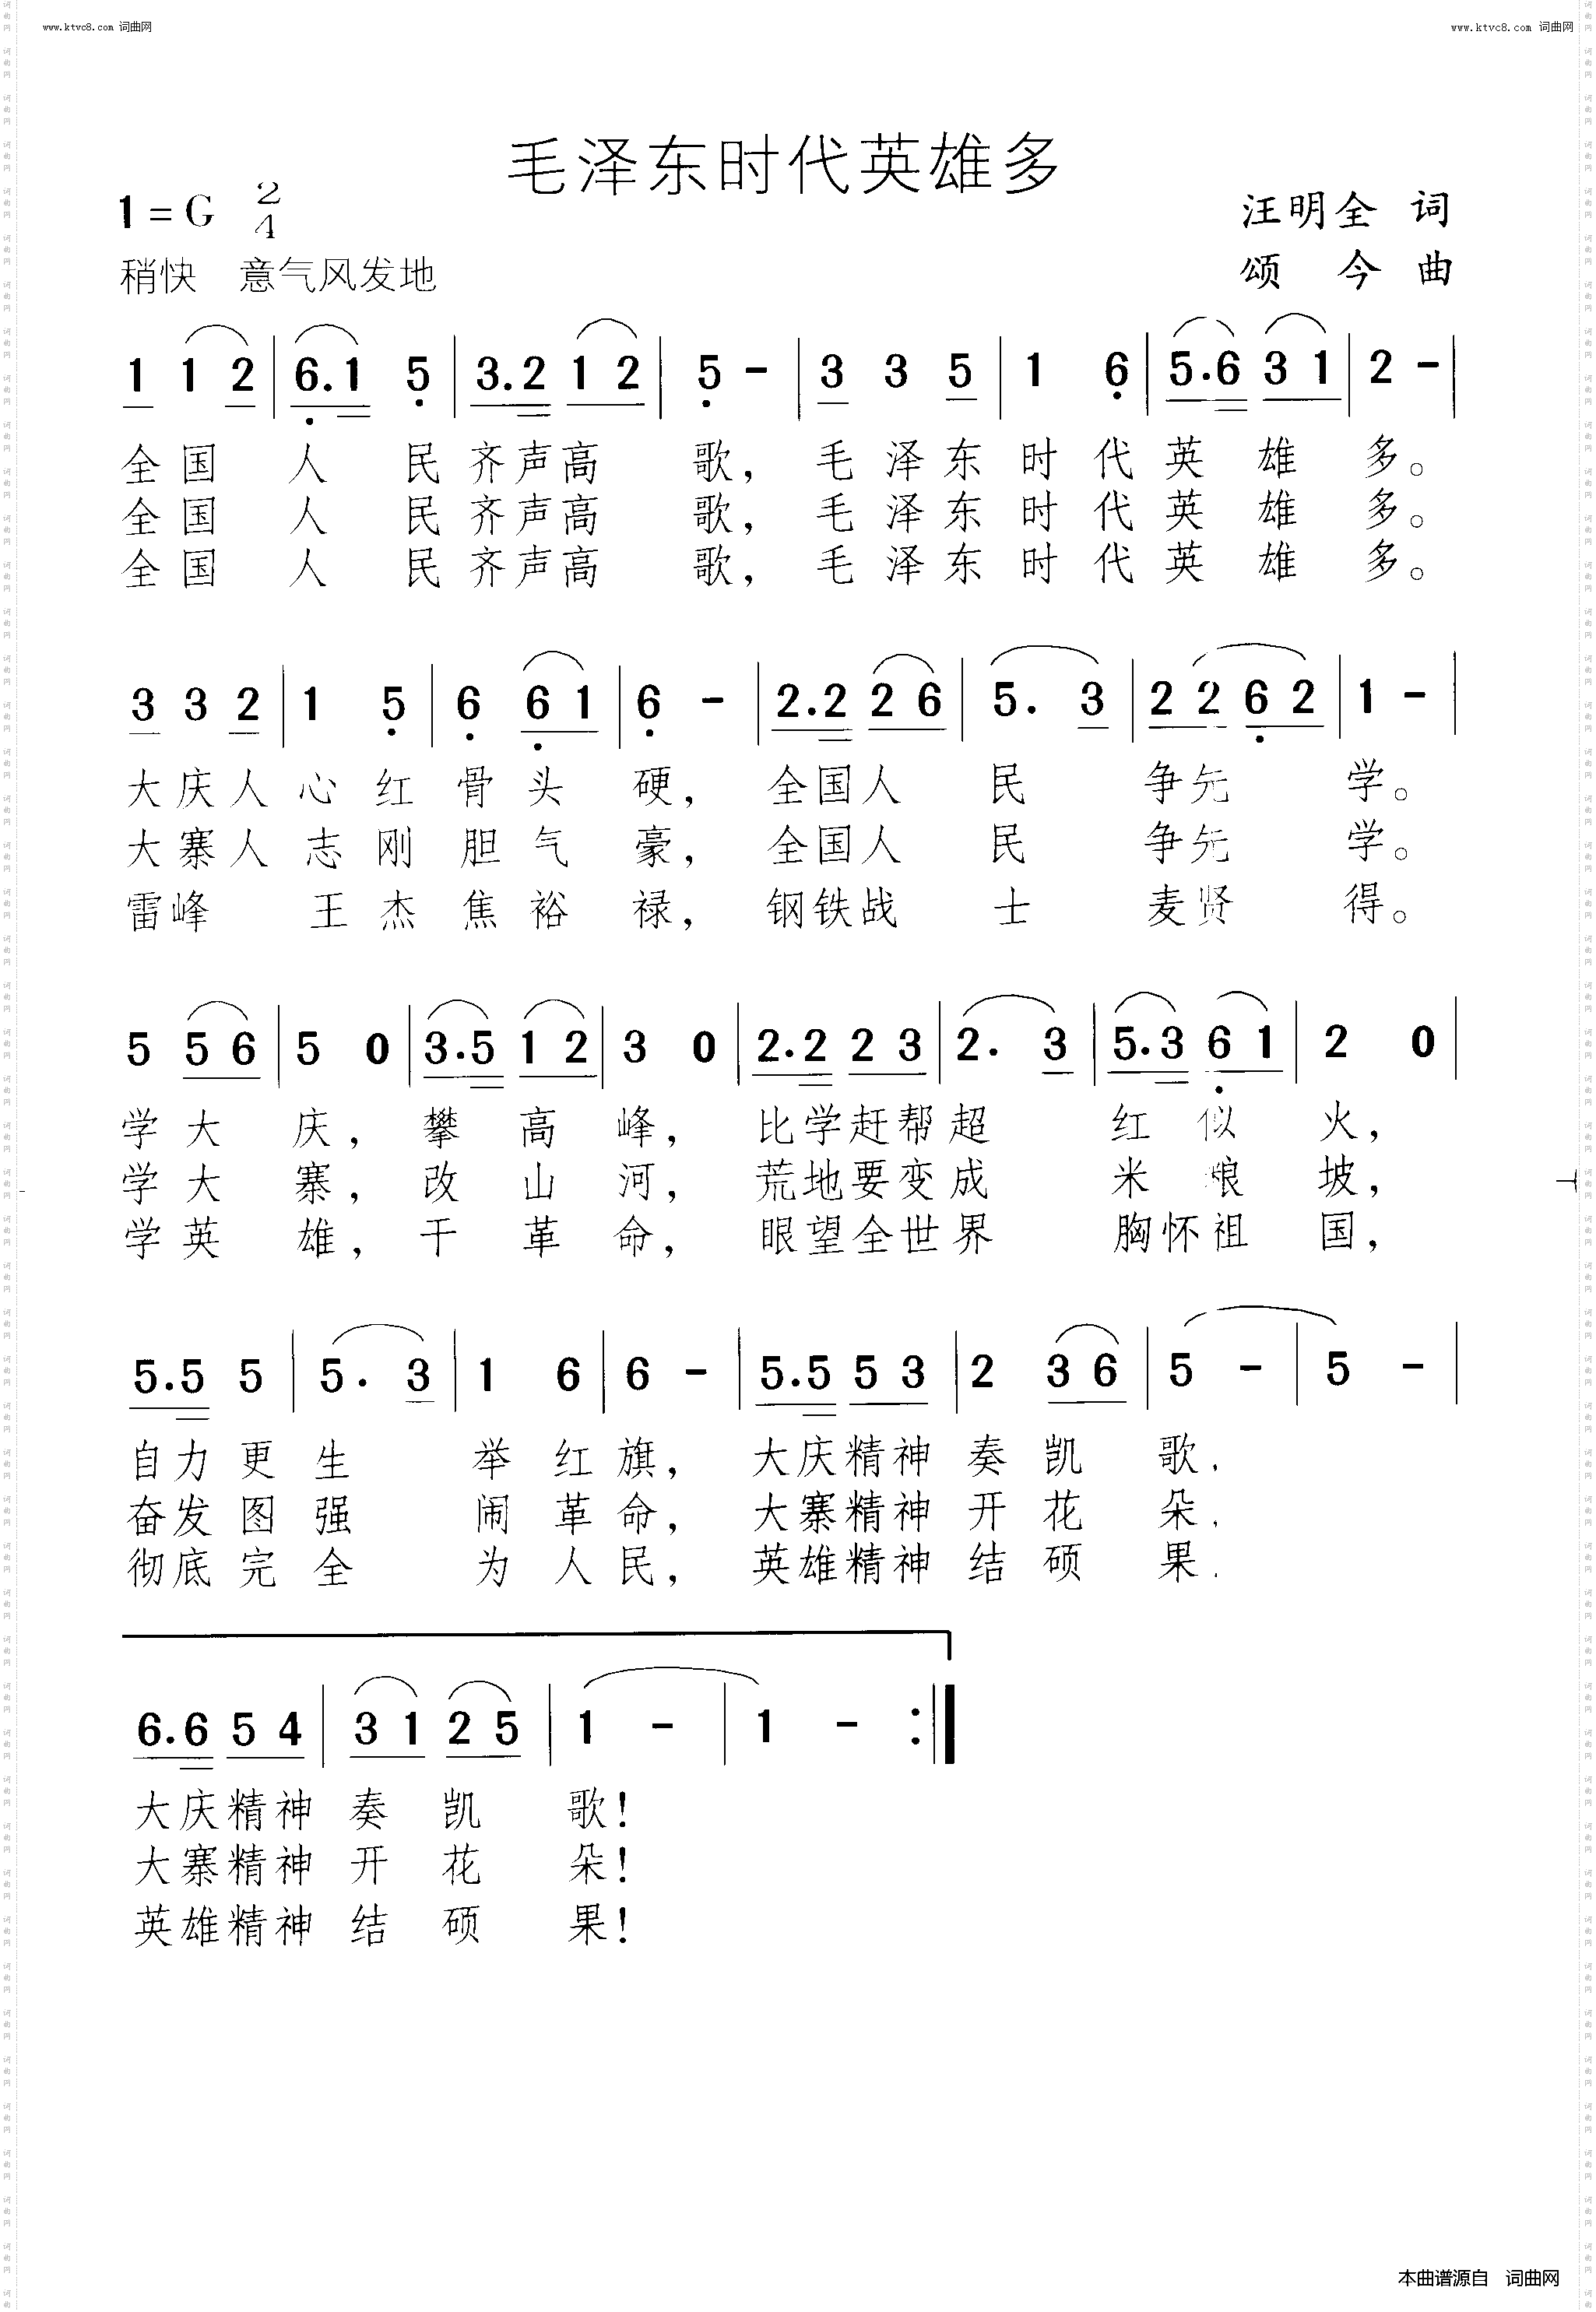 www.ktvc8.com 词曲网
www.ktvc8.com 词曲网
毛泽东时代英雄多
1=G 2/4
汪明全 词
稍快 意气风发地
颂 今 曲
1 1 2 | 6.1 5 | 3.2 1 2 | 5 - | 3 3 5 | 1 6 | 5.6 3 1 | 2 - |
全国人民齐声高歌，毛泽东时代英雄多。
全国人民齐声高歌，毛泽东时代英雄多。
全国人民齐声高歌，毛泽东时代英雄多。
3 3 2 | 1 5 | 6 6 1 | 6 - | 2.2 2 6 | 5. 3 | 2 2 6 2 | 1 - |
大庆人心红骨头硬，全国人民争先学。
大寨人志刚胆气豪，全国人民争先学。
雷峰王杰焦裕禄，钢铁战士麦贤得。
5 5 6 | 5 0 | 3.5 1 2 | 3 0 | 2.2 2 3 | 2. 3 | 5.3 6 1 | 2 0 |
学大庆，攀高峰，比学赶帮超红似火，
学大寨，改山河，荒地要变成米粮坡，
学英雄，干革命，眼望全世界胸怀祖国，
5.5 5 | 5. 3 | 1 6 | 6 - | 5.5 5 3 | 2 3 6 | 5 - | 5 - |
自力更生举红旗，大庆精神奏凯歌.
奋发图强闹革命，大寨精神开花朵.
彻底完全为人民，英雄精神结硕果.
6.6 5 4 | 3 1 2 5 | 1 - | 1 - :|
大庆精神奏凯歌！
大寨精神开花朵！
英雄精神结硕果！
本曲谱源自 词曲网